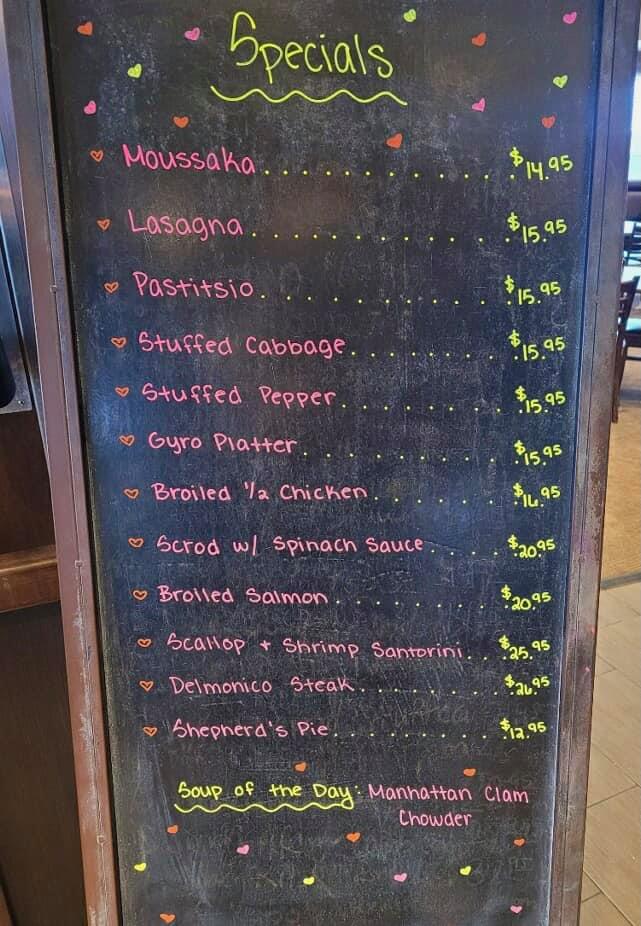 Specials
Moussaka............$14.95
Lasagna............$15.95
Pastitsio..........$15.95
Stuffed Cabbage........$15.95
Stuffed Pepper........$15.95
Gyro Platter.........$15.95
Broiled 1/2 Chicken......$16.95
Scrod w/ Spinach Sauce....$20.95
Broiled Salmon........$20.95
Scallop + Shrimp Santorini..$25.95
Delmonico Steak.......$26.95
Shepherd's Pie........$12.95
Soup of the Day: Manhattan Clam
Chowder